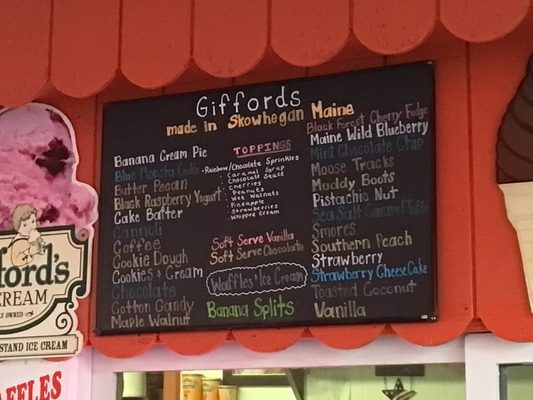 Giffords
made in Skowhegan Maine
Banana Cream Pie
Blue Monsta Cake
Butter Pecan
Black Raspberry Yogurt
Cake Batter
Cannoli
Coffee
Cookie Dough
Cookies & Cream
Chocolate
Cotton Candy
Maple Walnut
TOPPINGS
- Rainbow/Chocolate Sprinkles
- Caramel Syrup
- Chocolate Sauce
- Cherries
- Peanuts
- Wet Walnuts
- Pineapple
- Strawberries
- Whipped Cream
Soft Serve Vanilla
Soft Serve Chocolate
Waffles & Ice Cream
Banana Splits
Black Forest Cherry Fudge
Maine Wild Blueberry
Mint Chocolate Chip
Moose Tracks
Muddy Boots
Pistachio Nut
Sea Salt Caramel
Smores
Southern Peach
Strawberry
Strawberry Cheese Cake
Toasted Coconut
Vanilla
ord's
CREAM
OWNED
STAND ICE CREAM
FFLES